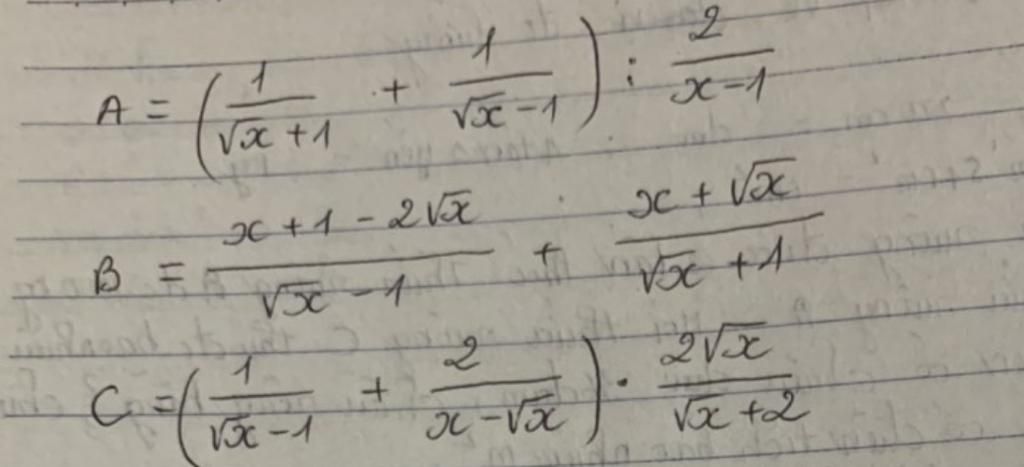 A = (1/(√x + 1) + 1/(√x - 1)) : 2/(x - 1)
B = (x + 1 - 2√x)/(√x - 1) + (x + √x)/(√x + 1)
C = (1/(√x - 1) + 2/(x - √x)) · 2√x/(√x + 2)